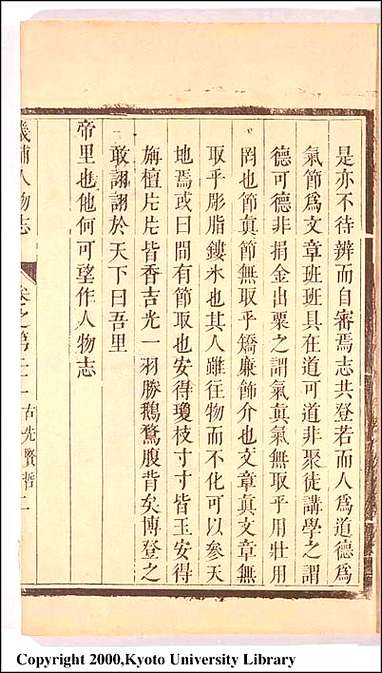 是亦不待辨而自審焉志共登若而人爲道德爲
氣節爲文章班班具在道可道非聚徒講學之謂
德可德非捐金出粟之謂氣眞氣無取乎用壯用
罔也節眞節無取乎矯廉飾介也文章眞文章無
取乎彫脂鏤氷也其人雖往物而不化可以參天
地焉或曰間有節取也安得瓊枝寸寸皆玉安得
旃檀片片皆香吉光一羽勝鵝鶩腹背矣博登之
敢詡詡於天下曰吾里
帝里也他何可望作人物志
畿輔人物志
卷之第二十一
古先賢哲
二
Copyright 2000,Kyoto University Library